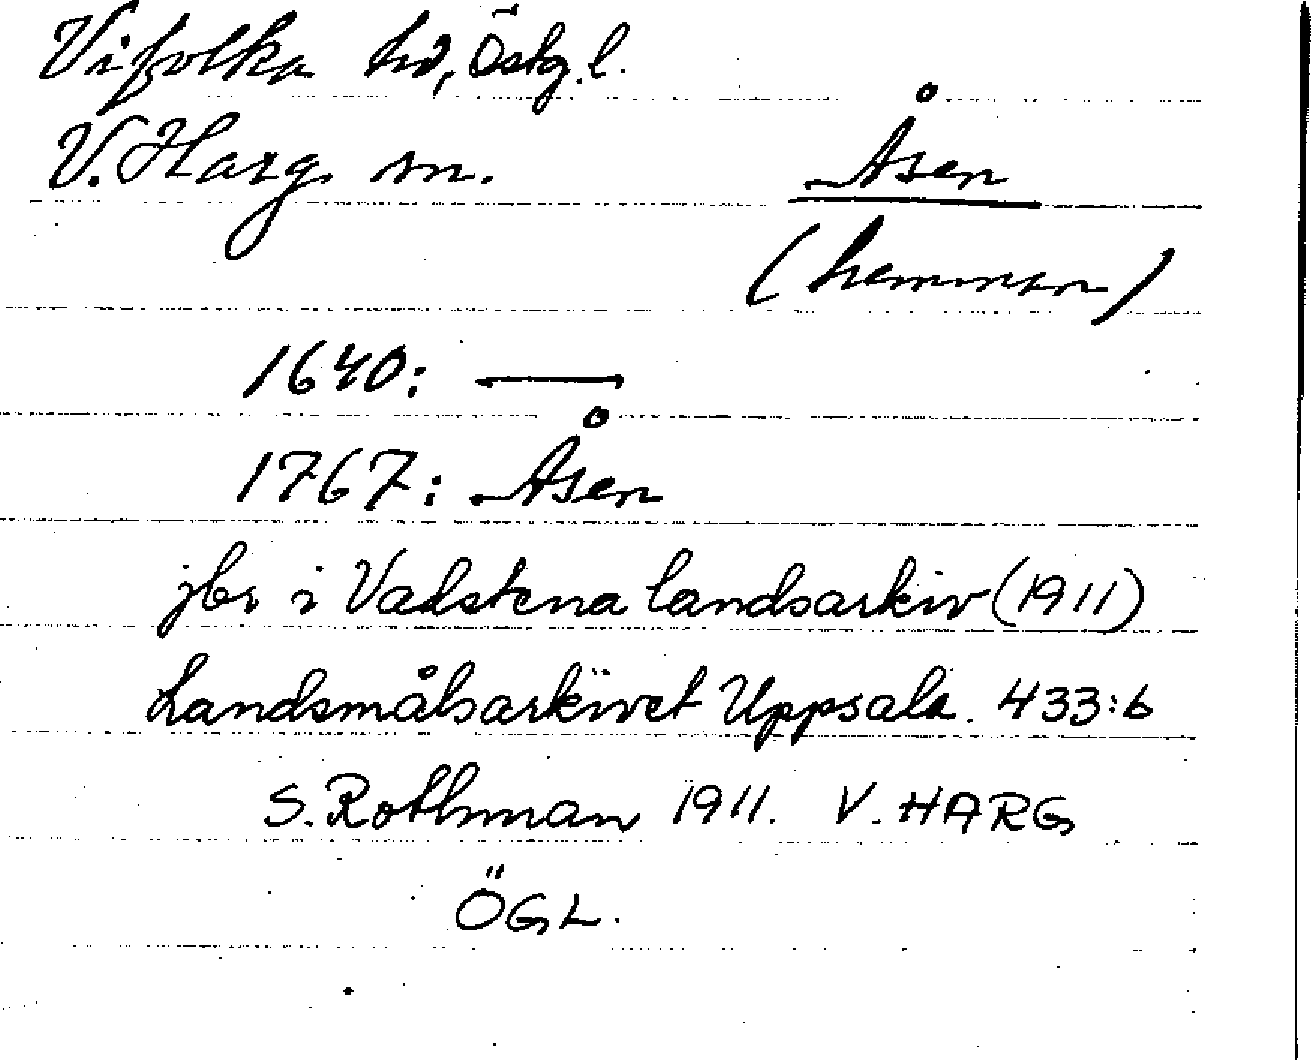 Vifolka hd, Östg. l.
V. Harg sn.
Åsen
(hemman)
1640: —
1767: Åsen
jbr i Vadstena landsarkiv (1911)
Landsmålsarkivet Uppsala. 433:b
S. Rothman 1911. V. HARG
ÖGL.